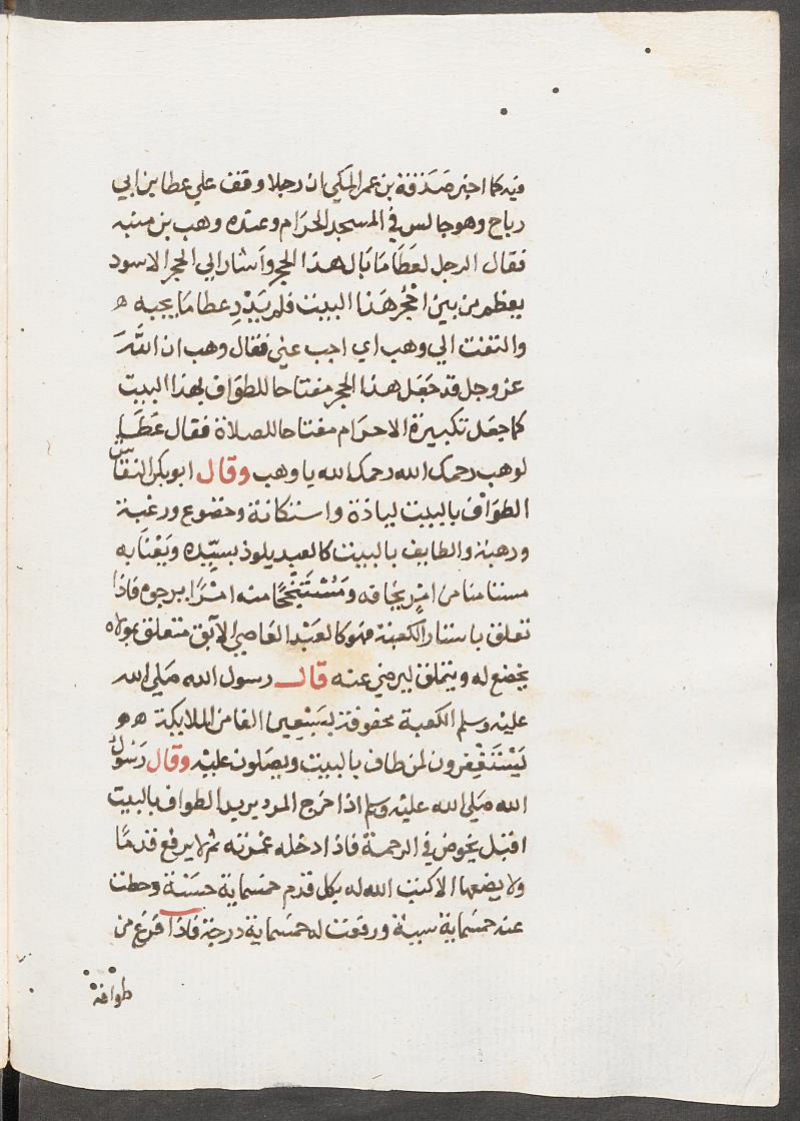 فيه كما اخبر صدقة بن عمر المكي ان رجلا وقف علي عطا بن ابي
رباح وهو جالس في المسجد الحرام وعنده وهب بن منبه
فقال الرجل لعطا ما بال هذا الحجر واشار الي الحجر الاسود
يعظم من بين احجر هذا البيت فلم يدر عطا ما يجيبه ه
والتفت الي وهب اي اجب عني فقال وهب ان الله
عز وجل قد جعل هذا الحجر مفتاحا للطواف بهذا البيت
كما جعل تكبيرة الاحرام مفتاحا للصلاة فقال عطا
لوهب رحمك الله رحمك الله يا وهب وقال ابو بكر النقاش
الطواف بالبيت لياذة واستكانة وخضوع ورغبة
ورهبة والطايف بالبيت كالعبد يلوذ بسيده
من امر يخافه ومستنجحا منه امرا يرجوه فاذا
تعلق باستار الكعبة فهو كالعبد العاصي الآبق متعلق بمولاه
يخضع له ويتملق ليرضي عنه قال رسول الله صلي الله
عليه وسلم الكعبة محفوفة بسبعين الفا من الملايكة ه ه
يستغفرون لمن طاف بالبيت ويصلون عليه وقال رسول
الله صلي الله عليه وسلم اذا خرج المرء يريد الطواف بالبيت
اقبل يخوض في الرحمة فاذا دخله غمرته ثم لا يرفع قدما
ولا يضعها الا كتب الله له بكل قدم خمسماية حسنة وحطت
عنه خمسماية سيئة ورفعت له خمسماية درجة فاذا فرغ من
طوافه